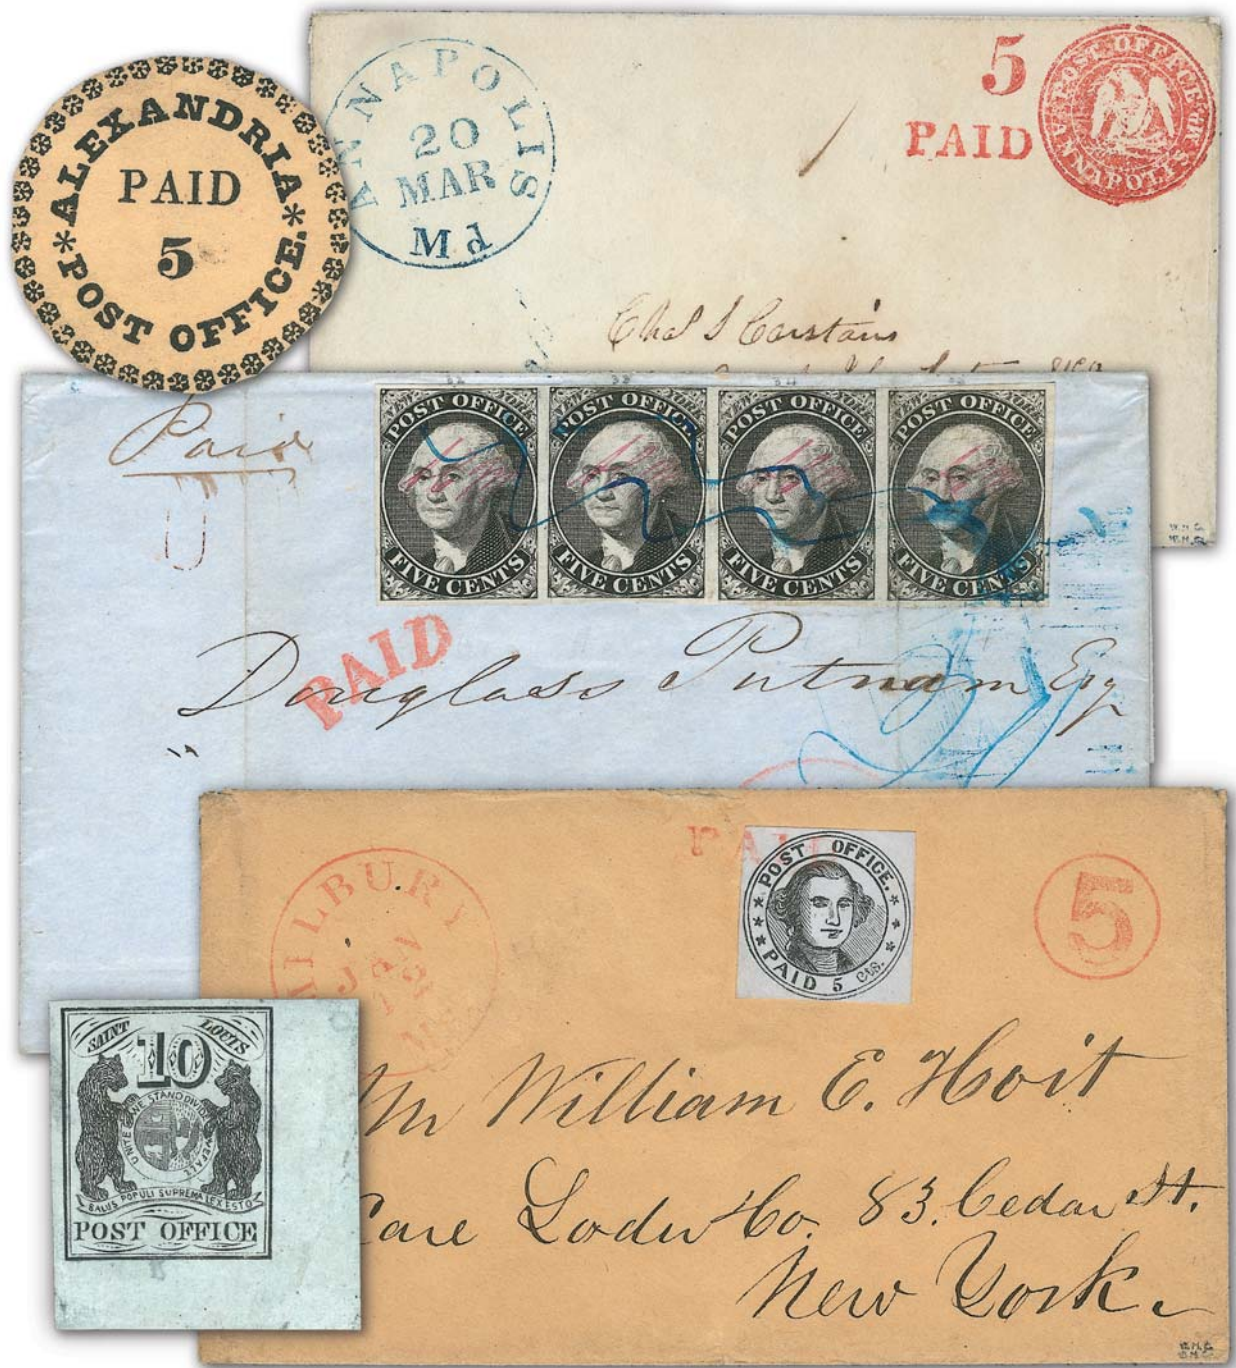 ALEXANDRIA
POST OFFICE.
PAID
5
ANNAPOLIS
20
MAR
Md
5
PAID
POST OFFICE
ANNAPOLIS Md.
Chas S Carstairs
Paid
POST OFFICE
FIVE CENTS
POST OFFICE
FIVE CENTS
POST OFFICE
FIVE CENTS
POST OFFICE
FIVE CENTS
PAID
Douglass Putnam Esq
PAID
POST OFFICE.
PAID 5 cts.
5
JAN
Mr William E. Hoit
Care Loder & Co. 83. Cedar St.
New York.
SAINT LOUIS
10
UNITED WE STAND DIVIDED WE FALL
SALUS POPULI SUPREMA LEX ESTO
POST OFFICE